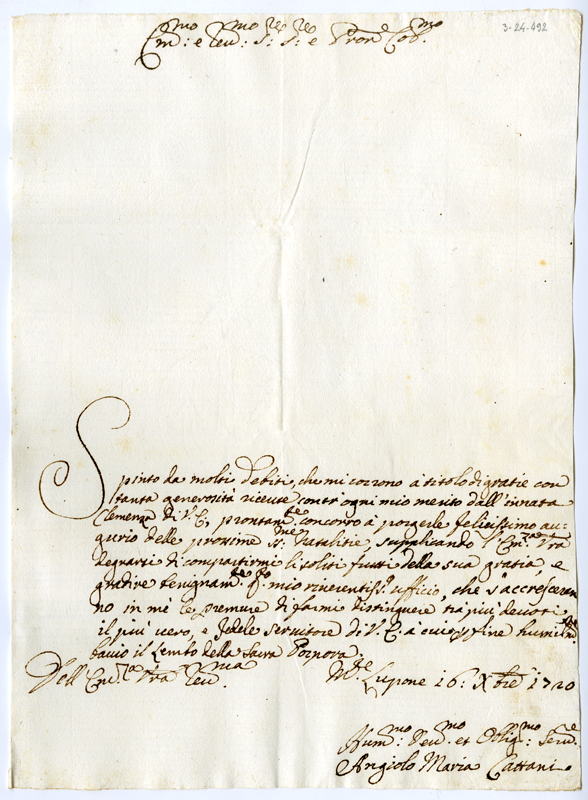 3-24-492
Em:mo e Rev:mo S:re S:re e Pron:e Col:mo
Spinto da molti debiti, che mi corrono à titolo di gratie con
tanta generosità riceute contr'ogni mio merito dall'innata
Clemenza di V. E. prontam:te concorro à porgerle felicissimo au-
gurio delle prossime SS:me Natalitie, supplicando l'Em:za Vra
degnarsi di compartirmi li soliti frutti della sua gratia, e
gradire benignam:te q:to mio riverentiss:o ufficio, che s'accresceran
no in mè le premure di farmi distinguere trà più devoti
il più vero, e fedele servitore di V. E. à cui p fine humilm:te
bacio il Lembo della Sacra Porpora.
Dell'Em:za Vra Rev:ma
M:te Lupone 16: Xbre 1720
Hum:mo Dev:mo et Oblig:mo Serv:re
Angiolo Maria Cattani